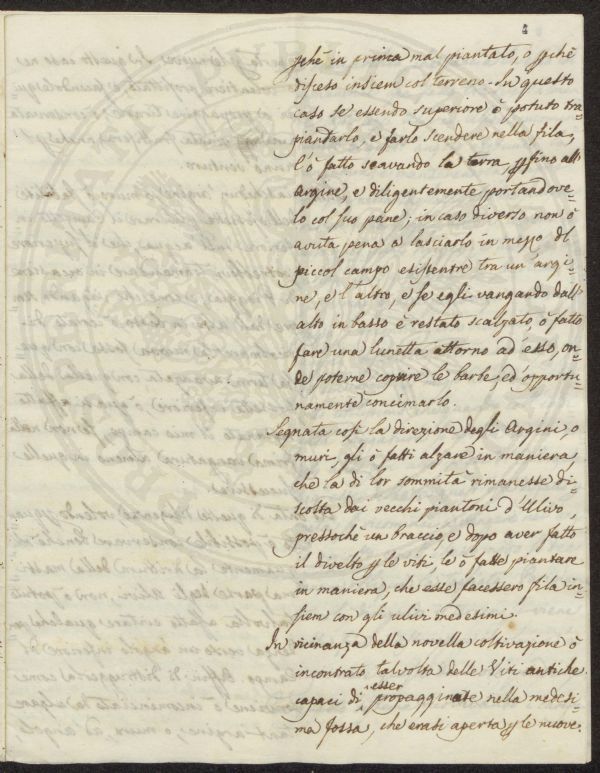 4
pchè in prima mal piantato, o pchè
disceso insiem col terreno. In questo
caso se essendo superiore ò potuto tra-
piantarlo, e farlo scendere nella fila,
l'ò fatto scavando la terra, p fino all'
argine, e diligentemente portandove-
lo col suo pane; in caso diverso non ò
avuta pena a lasciarlo in mezzo del
piccol campo esistente tra un' argi-
ne, e l'altro, e se egli vangando dall'
alto in basso è restato scalzato, ò fatto
fare una lunetta attorno ad' esso, on-
de poterne coprire le barbe, ed' opportu-
namente concimarlo.
Segnata così la direzione degli Argini, o
muri, gli ò fatti alzare in maniera
che la di lor sommità rimanesse di-
scosta dai vecchi piantoni d'Ulivo
pressochè un braccio, e dopo aver fatto
il divelto p le viti, le ò fatte piantare
in maniera, che esse facessero fila in-
siem con gli ulivi medesimi.
In vicinanza della novella coltivazione ò
incontrato talvolta delle Viti antiche
capaci di esser propagginate nella medesi-
ma fossa, che erasi aperta p le nuove.